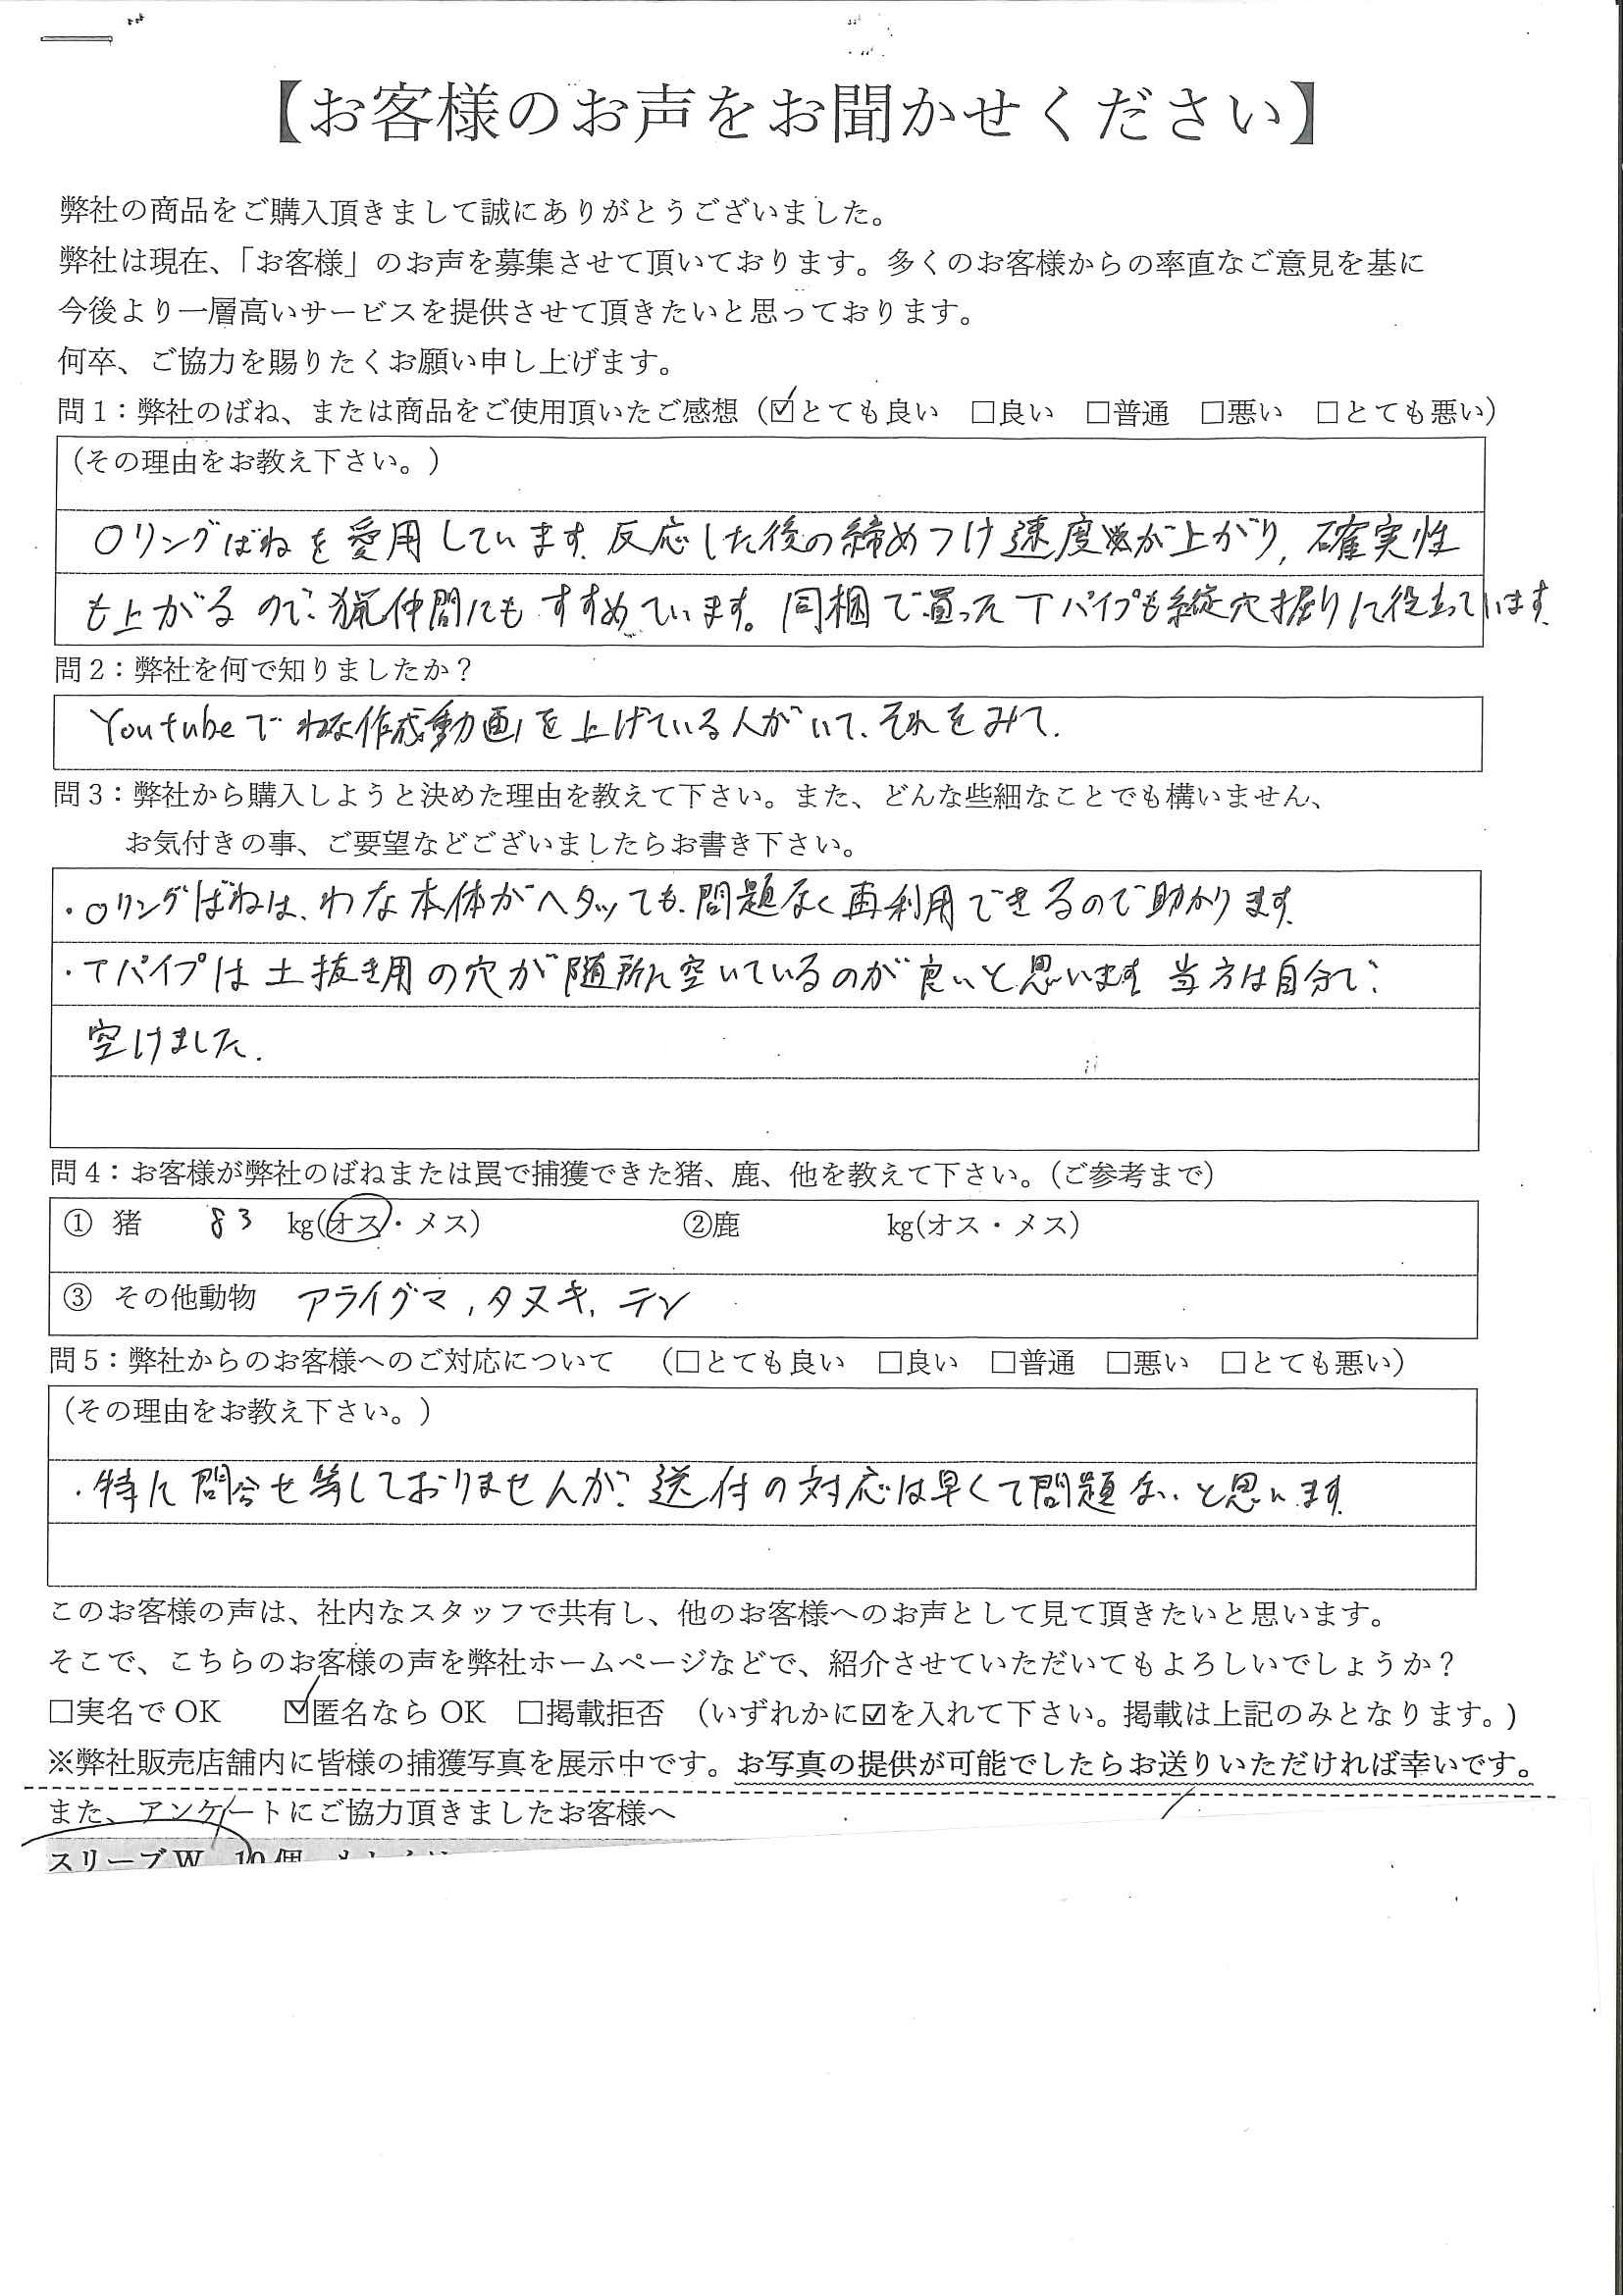 【お客様のお声をお聞かせください】
弊社の商品をご購入頂きまして誠にありがとうございました。
弊社は現在、「お客様」のお声を募集させて頂いております。多くのお客様からの率直なご意見を基に
今後より一層高いサービスを提供させて頂きたいと思っております。
何卒、ご協力を賜りたくお願い申し上げます。
問1：弊社のばね、または商品をご使用頂いたご感想（☑とても良い　□良い　□普通　□悪い　□とても悪い）
（その理由をお教え下さい。）
Oリングばねを愛用しています。反応した後の締めつけ速度が上がり、確実性
も上がるので、猟仲間にもすすめています。同梱で買ったTパイプも縦穴掘りに役立っています。
問2：弊社を何で知りましたか？
Youtubeでわな作成動画を上げている人がいて、それをみて。
問3：弊社から購入しようと決めた理由を教えて下さい。また、どんな些細なことでも構いません、
お気付きの事、ご要望などございましたらお書き下さい。
・Oリングばねは、わな本体がヘタッても、問題なく再利用できるので助かります。
・Tパイプは土抜き用の穴が随所に空いているのが良いと思います。当方は自分で
空けました。
問4：お客様が弊社のばねまたは罠で捕獲できた猪、鹿、他を教えて下さい。（ご参考まで）
① 猪　83　kg(オス・メス)　②鹿　kg(オス・メス)
③ その他動物　アライグマ、タヌキ、テン
問5：弊社からのお客様へのご対応について　（□とても良い　□良い　□普通　□悪い　□とても悪い）
（その理由をお教え下さい。）
・特に問合せ等しておりませんが、送付の対応は早くて問題ないと思います。
このお客様の声は、社内なスタッフで共有し、他のお客様へのお声として見て頂きたいと思います。
そこで、こちらのお客様の声を弊社ホームページなどで、紹介させていただいてもよろしいでしょうか？
□実名で OK　☑匿名なら OK　□掲載拒否　（いずれかに☑を入れて下さい。掲載は上記のみとなります。）
※弊社販売店舗内に皆様の捕獲写真を展示中です。お写真の提供が可能でしたらお送りいただければ幸いです。
また、アンケートにご協力頂きましたお客様へ
スリーブW　10個